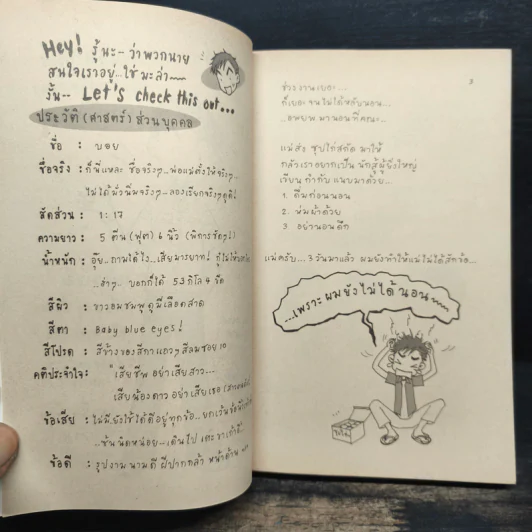 Hey! รู้นะ-- ว่าพวกนาย
สนใจเราอยู่...ใช่มะล่า~~~
งั้น-- Let's check this out...
ประวัติ(ศาสตร์)ส่วนบุคคล
ชื่อ : บอย
ชื่อจริง : ก็นี่แหละ ชื่อจริงๆ..พ่อแม่ตั้งให้จริงๆ...
ไม่ได้มั่วนิ่มจริงๆ--ลองเรียกจริงๆดูดิ!
สัดส่วน : 1:17
ความยาว : 5 ตีน (ฟุต) 6 นิ้ว (พิการชัดๆ!)
น้ำหนัก : อุ๊ย..ถามได้ไง..เสียมารยาท! กู้ไม่ให้
..ฮ่าๆ.. บอกก็ได้ 53 กิโล 4 ขีด
สีผิว : ขาวอมชมพู ดูมีเลือดสาด
สีตา : Baby blue eyes!
สีโปรด : สีข้างของสีกาแถวๆสีลมซอย 10
คติประจำใจ : "เสียชีพ อย่าเสียสาว...
เสียน้องดาว อย่าเสียเธอ
ข้อเสีย : ไม่มี.ยังใช้ได้ดีอยู่ทุกข้อ..ยกเว้นข้อ
..ซ้นนิดหน่อย--เดินไป เตะ ขาเก้าอี้
ข้อดี : รูปงาม นามดี ฝีปากกล้า หน้าด้าน
3
ช่วงงานเยอะ...
ก็เยอะจนไม่ได้หลับนอน...
...อพยพมานอนที่คณะ...
แม่ส่ง ซุปไก่สกัด มาให้
กลัวเราอยากเป็น นักสู้ผู้ยิ่งใหญ่
เขียน กำกับ แนบมาด้วย...
1. ดื่มก่อนนอน
2. ห่มผ้าด้วย
3 อย่านอนดึก
แม่ครับ... 3 วันมาแล้ว ผมยังทำให้แม่ไม่ได้สักข้อ...
...เพราะผมยังไม่ได้นอน~~~